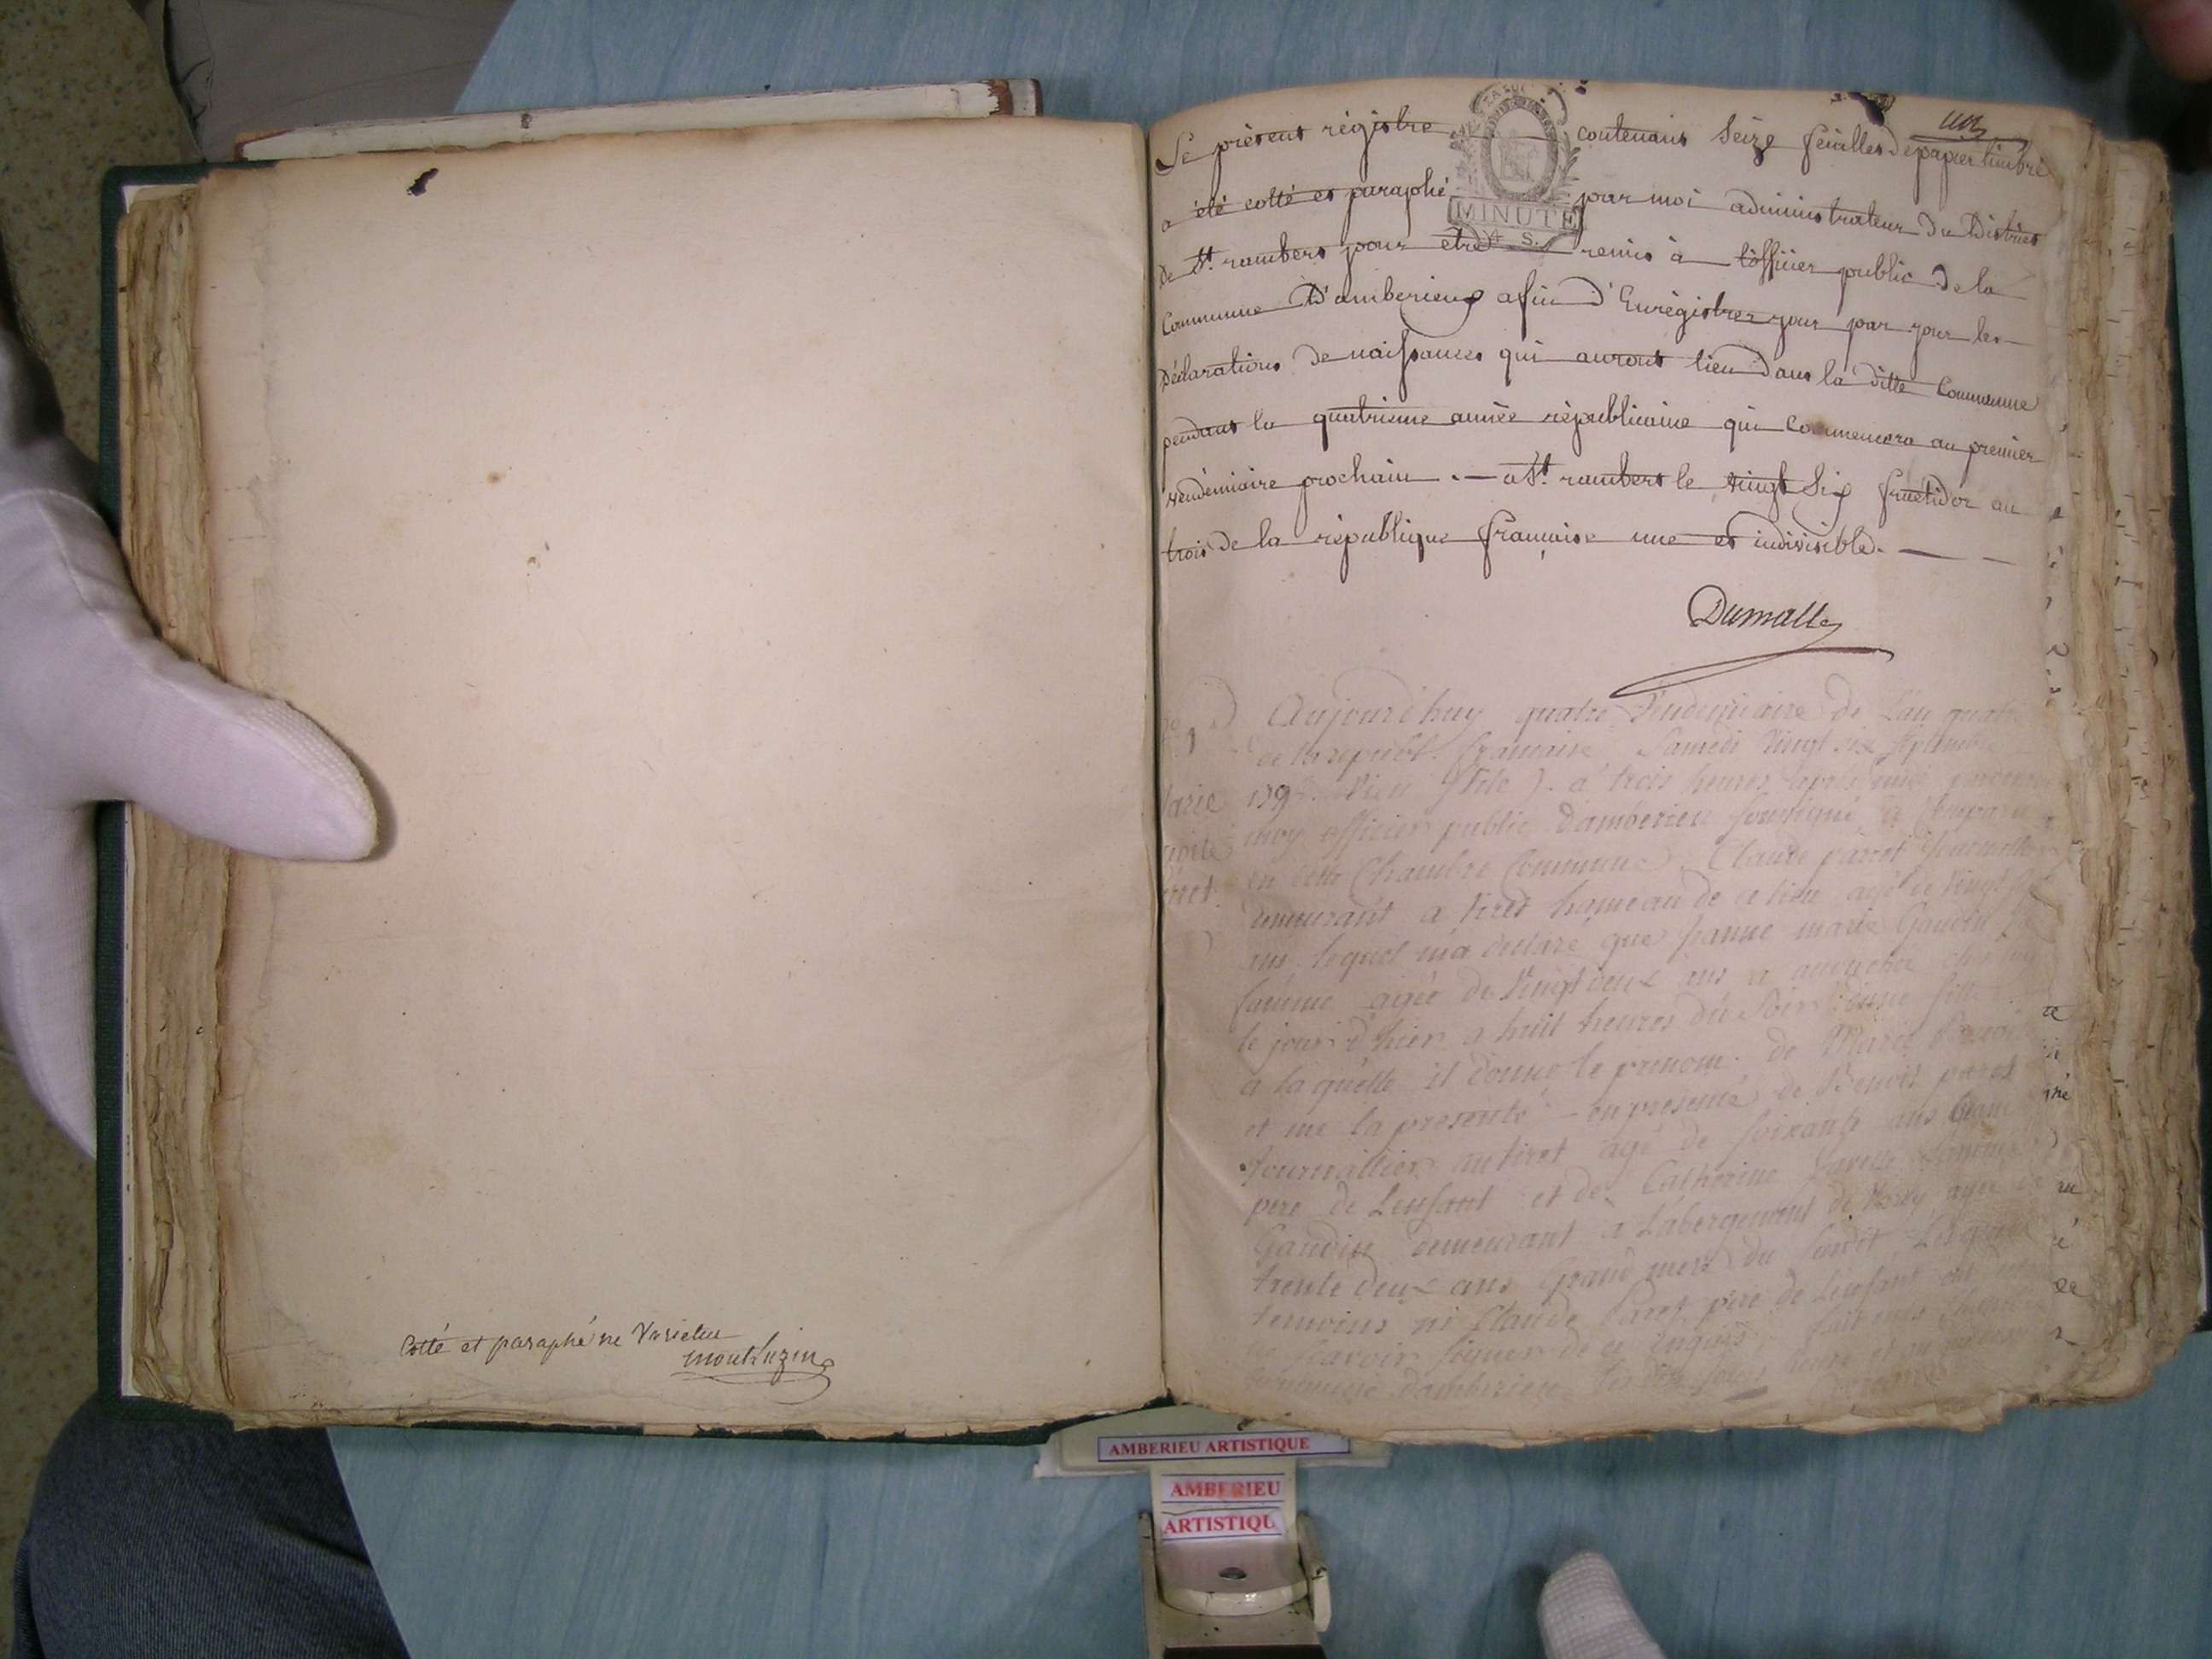 Cotté et paraphé ne Varietur
montluzin
un
Le présent régistre contenant Seize feuilles de papier timbré
a été cotté et paraphé par moi administrateur du District
MINUTE
4 S.
de St. rambert pour etre remis à l'officier public de la
Commune D'amberieux afin d'Enrégistrer jour par jour les
Déclarations de naissances qui auront lieu dans la ditte Commune
pendant la quatrieme année républicaine qui Commencera au premier
vendémiaire prochain . — a St. rambert le vingt Six fructidor an
trois de la république française une et indivisible. —
Dumalle
Aujourd'huy quatre Vendemiaire de L'an quatre
de la republ. francaise Samedi Vingt six septembre
179 Vieu Stile ). a trois heures après midi
moy officier public d'amberieu soussigné a Comparu
en cette Chambre Commune Claude parret Journallier
demeurant a tiret hameau de ce lieu agé de Vingt
ans lequel m'a declaré que janne marie Gaudin
famme agée de Vingt deux ans a accouché
le jour d'hier a huit heures du Soir d'une fille
a laquelle il donne le prenom de Marie
et me la presenté - en presence de Benoit paret
Journallier au tiret agé de soixante ans Grand
pere de Lenfant et de Catherine famme
Gaudin demeurant a Labergement de Varey agée de
trente deux ans Grand mere du
temoins ni Claude Paret pere de Lenfant ont
savoir signer de ce enquis, fait
Commune d'amberieu
AMBERIEU ARTISTIQUE
AMBERIEU
ARTISTIQU